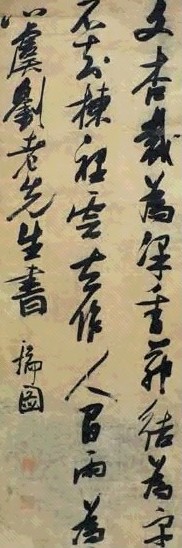 文杏裁為梁香茅結為宇
不知棟裡雲去作人間雨為
虞劉老先生書 瑞圖